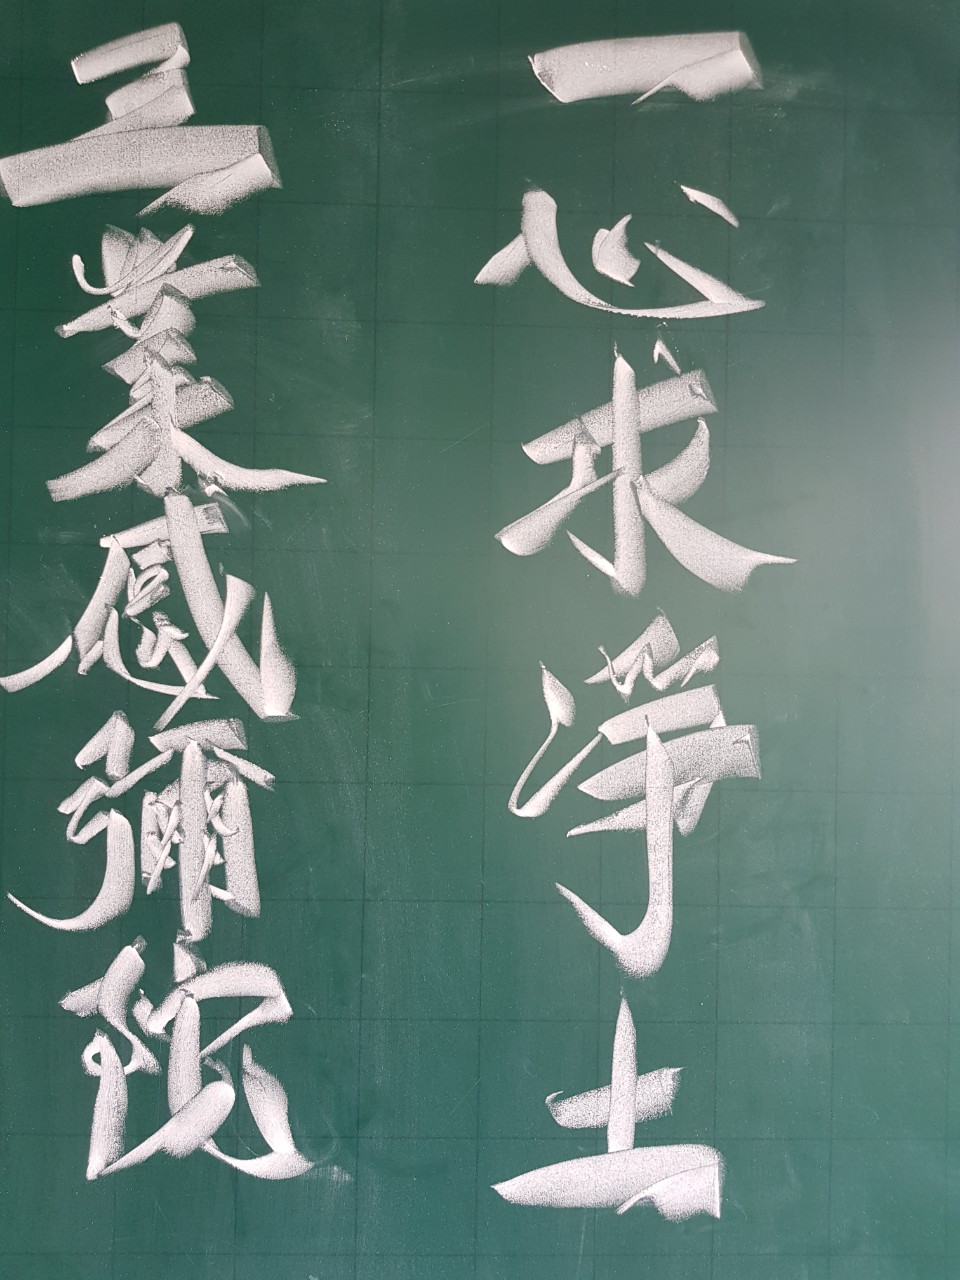 一心求淨土
三業感彌陀